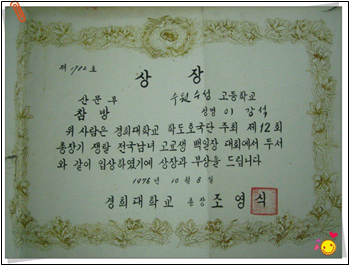 제 1982 호
상 장
산문부 수원수성 고등학교
참방 성명 이강석
위 사람은 경희대학교 학도호국단 주최 제12회
총장기 쟁탈 전국남녀 고교생 백일장 대회에서 두서
와 같이 입상하였기에 상장과 부상을 드립니다
1976년 10월 8일
경희대학교 총장 조영식